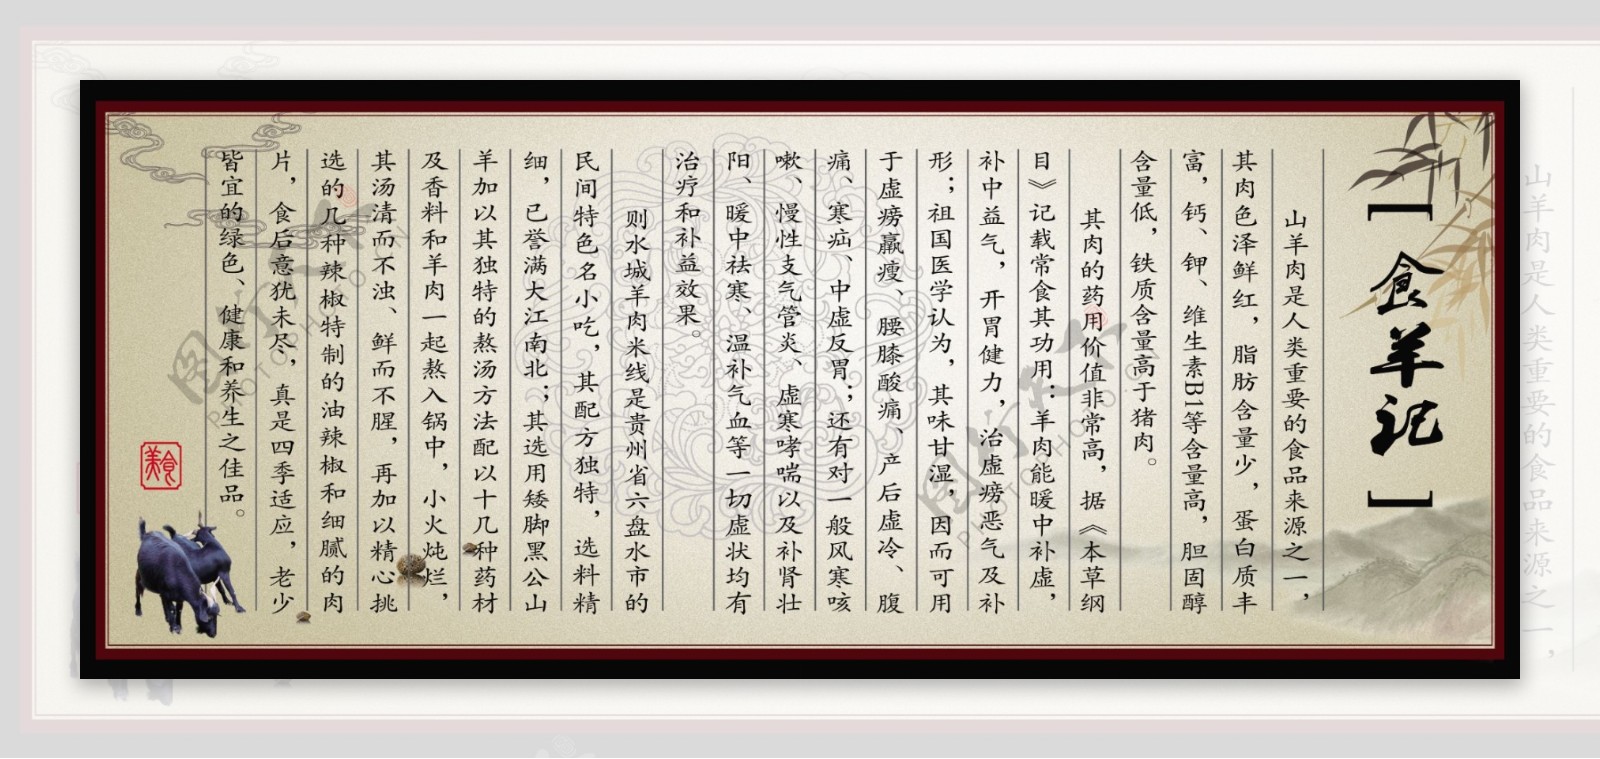 [食羊记]
山羊肉是人类重要的食品来源之一，
其肉色泽鲜红，脂肪含量少，蛋白质丰
富，钙、钾、维生素B1等含量高，胆固醇
含量低，铁质含量高于猪肉。
其肉的药用价值非常高，据《本草纲
目》记载常食其功用：羊肉能暖中补虚，
补中益气，开胃健力，治虚痨恶气及补
形；祖国医学认为，其味甘湿，因而可用
于虚痨羸瘦、腰膝酸痛、产后虚冷、腹
痛、寒疝、中虚反胃；还有对一般风寒咳
嗽、慢性支气管炎、虚寒哮喘以及补肾壮
阳、暖中祛寒、温补气血等一切虚状均有
治疗和补益效果。
则水城羊肉米线是贵州省六盘水市的
民间特色名小吃，其配方独特，选料精
细，已誉满大江南北；其选用矮脚黑公山
羊加以其独特的熬汤方法配以十几种药材
及香料和羊肉一起熬入锅中，小火炖烂，
其汤清而不浊、鲜而不腥，再加以精心挑
选的几种辣椒特制的油辣椒和细腻的肉
片，食后意犹未尽，真是四季适应，老少
皆宜的绿色、健康和养生之佳品。
美食
图行天下
PHOTOPHOTO.CN
图行天下
PHOTOPHOTO.CN
山羊肉是人类重要的食品来源之一，